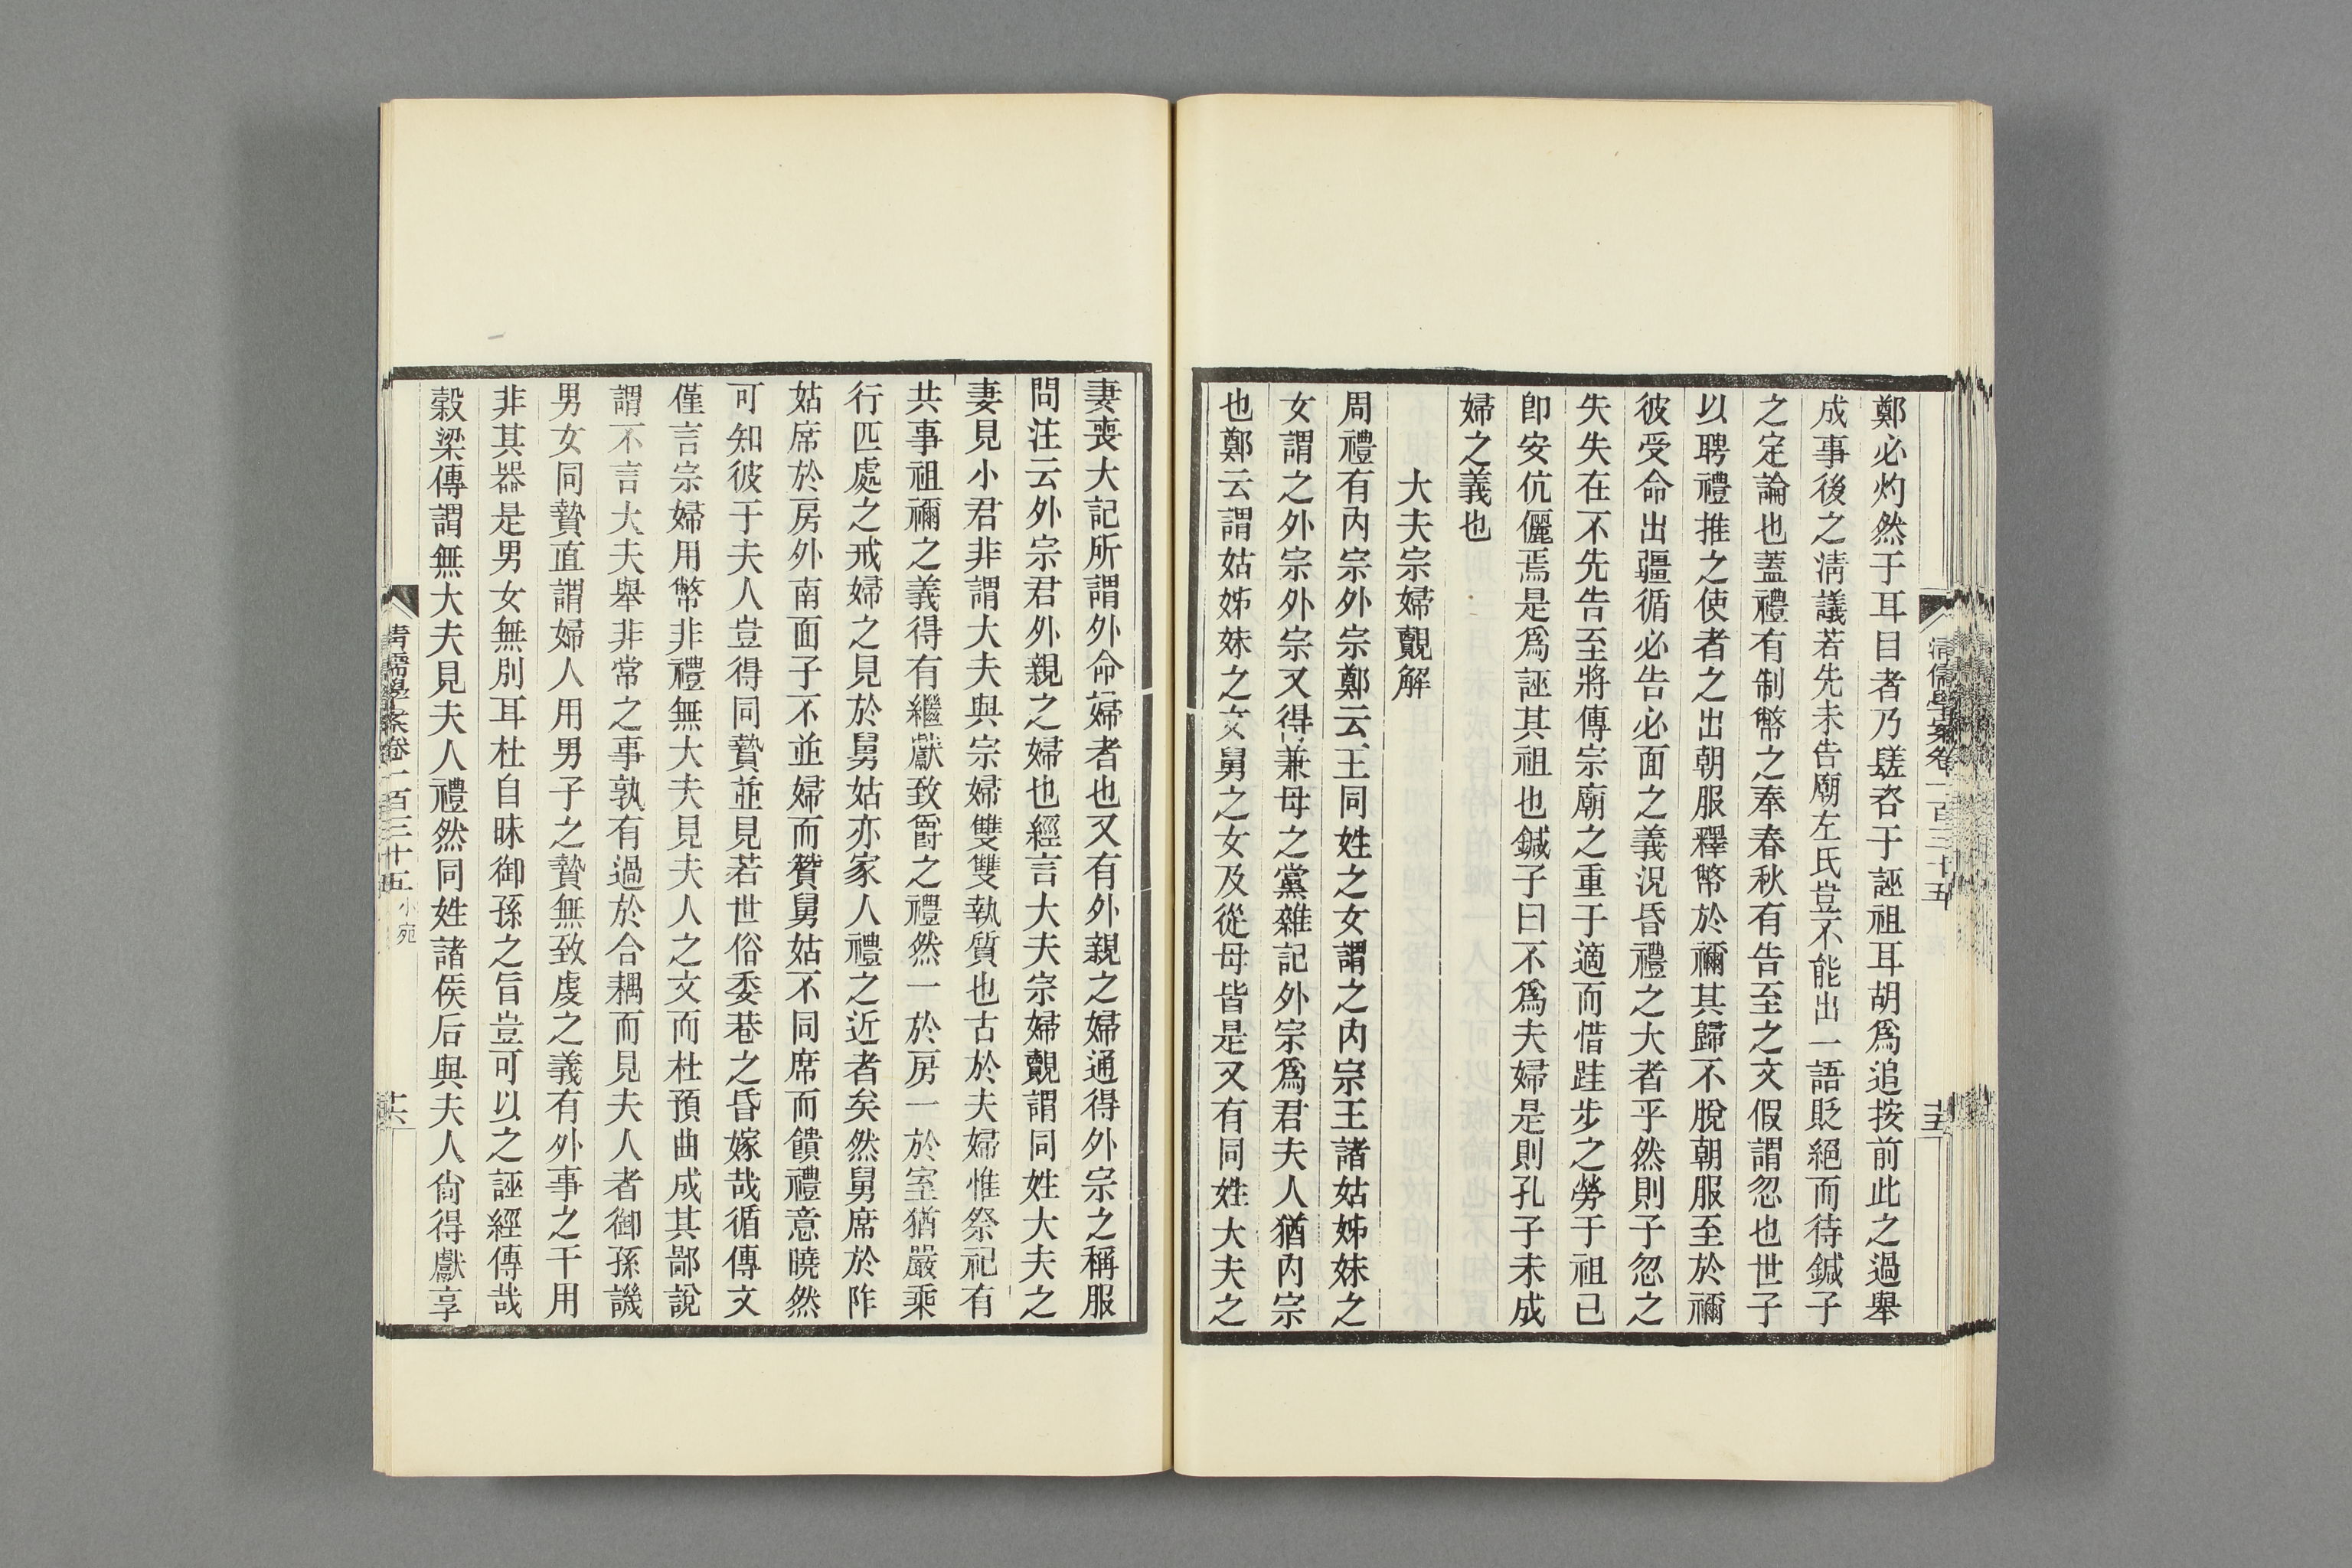 鄭必灼然于耳目者乃瞇咨于誣祖耳胡爲追按前此之過舉
成事後之淸議若先未告廟左氏豈不能出一語貶絕而待鍼子
之定論也蓋禮有制幣之奉春秋有告至之文假謂忽也世子
以聘禮推之使者之出朝服釋幣於禰其歸不脫朝服至於禰
彼受命出疆循必告必面之義況昏禮之大者乎然則子忽之
失失在不先告至將傳宗廟之重于適而惜跬步之勞于祖已
卽安伉儷焉是爲誣其祖也鍼子曰不爲夫婦是則孔子未成
婦之義也
大夫宗婦覿解
周禮有內宗外宗鄭云王同姓之女謂之內宗王諸姑姊妹之
女謂之外宗外宗又得兼母之黨雜記外宗爲君夫人猶內宗
也鄭云謂姑姊妹之女舅之女及從母皆是又有同姓大夫之
妻喪大記所謂外命婦者也又有外親之婦通得外宗之稱服
問注云外宗君外親之婦也經言大夫宗婦覿謂同姓大夫之
妻見小君非謂大夫與宗婦雙雙執質也古於夫婦惟祭祀有
共事祖禰之義得有繼獻致爵之禮然一於房一於室猶嚴乘
行匹處之戒婦之見於舅姑亦家人禮之近者矣然舅席於阼
姑席於房外南面子不並婦而贊舅姑不同席而饋禮意曉然
可知彼于夫人豈得同贄並見若世俗委巷之昏嫁哉循傳文
僅言宗婦用幣非禮無大夫見夫人之文而杜預曲成其鄙說
謂不言大夫舉非常之事孰有過於合耦而見夫人者御孫譏
男女同贄直謂婦人用男子之贄無致虔之義有外事之干用
非其器是男女無別耳杜自昧御孫之旨豈可以之誣經傳哉
穀梁傳謂無大夫見夫人禮然同姓諸侯后與夫人尙得獻享
清儒學案卷一百三十五 小宛
十六